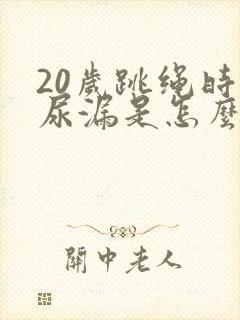 20歲跳绳時
尿漏是怎麽
關中老人